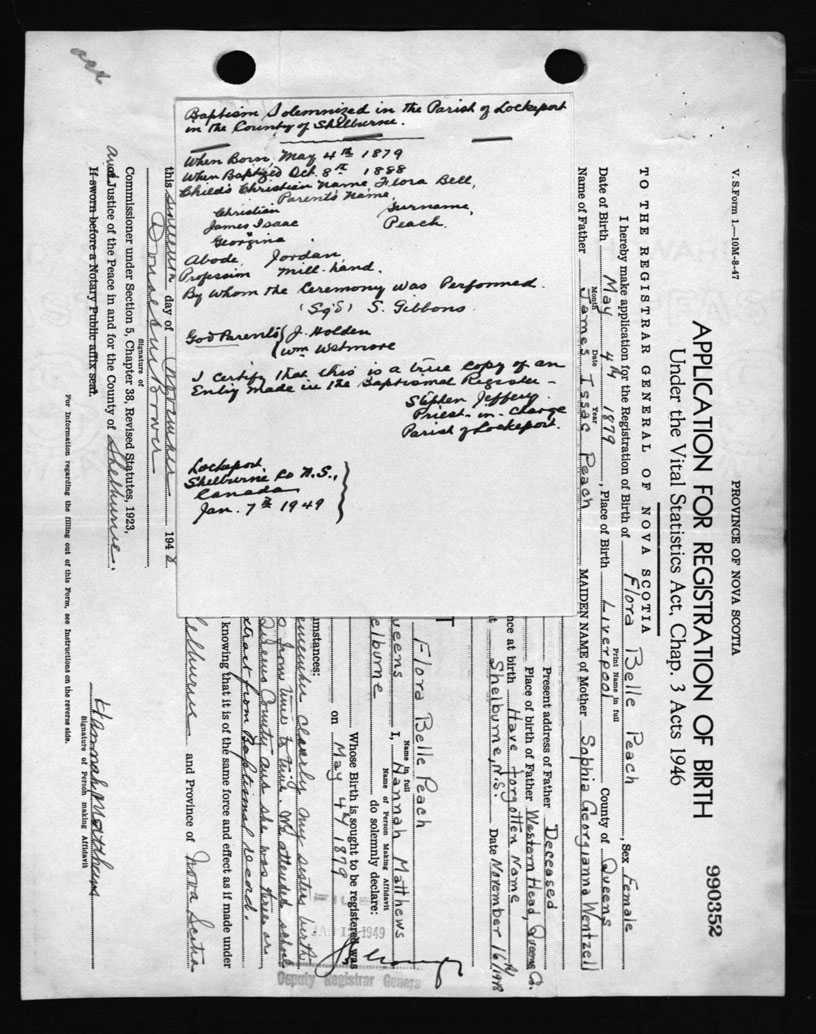 Baptism Solemnized in the Parish of Lockeport
in the County of Shelburne.
When Born, May 4th 1879
When Baptized Oct. 8th 1888
Child's Christian Name, Flora Bell,
Parents Name,
Christian Surname,
James Isaac Peach.
Georgina
Abode, Jordan,
Profession Mill-hand.
By Whom the Ceremony was Performed.
(Sg'd) S. Gibbons
God Parents { J. Holden
{ Wm Wetmore
I certify that this is a true copy of an
Entry made in the Baptismal Register -
Stephen Jeffery.
Priest-in-Charge
Parish of Lockeport.
Lockeport.
Shelburne Co N.S.,
Canada
Jan. 7th 1949
V. S. Form 1.—10M-8-47
PROVINCE OF NOVA SCOTIA
990352
APPLICATION FOR REGISTRATION OF BIRTH
Under the Vital Statistics Act, Chap. 3 Acts 1946
TO THE REGISTRAR GENERAL OF NOVA SCOTIA
I hereby make application for the Registration of Birth of Flora Belle Peach, Sex Female
Print Name in full
Date of Birth May 4th 1879, Place of Birth Liverpool County of Queens
Month Date Year
Name of Father James Issac Peach MAIDEN NAME of Mother Sophia Georgianna Wentzell
Present address of Father Deceased
Place of birth of Father Western Head, Queens Co.
nce at birth Have forgotten Name
Shelburne, N.S. Date November 16th/1948
T
Flora Belle Peach
Name in full
ueens I, Hannah Matthews
Name of Person Making Affidavit
elburne do solemnly declare:
Whose Birth is sought to be registered was
on May 4th 1879
mstances:
remember clearly my sisters birth
from time to time. We attended school
and she was three or
xtract from Baptismal record.
knowing that it is of the same force and effect as if made under
elburne and Province of Nova Scotia
1949
Deputy Registrar Genera
this sixteenth day of November 1948
Donald M Bower
Signature of
Commissioner under Section 5, Chapter 38, Revised Statutes, 1923,
and Justice of the Peace in and for the County of Shelburne.
If sworn before a Notary Public affix seal.
Hannah Matthews
Signature of Person making Affidavit
For Information regarding the filling out of this Form, see Instructions on the reverse side.